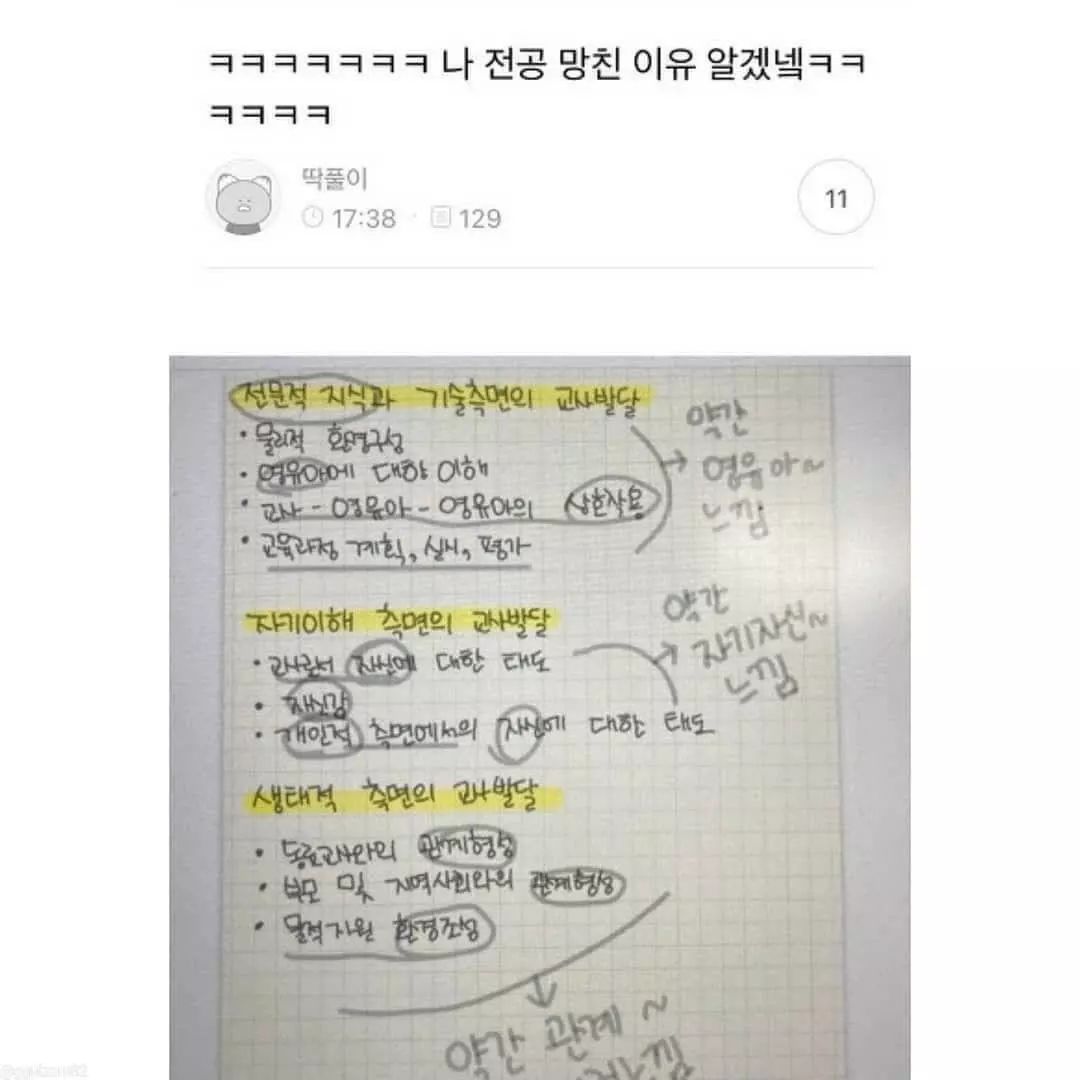 ㅋㅋㅋㅋㅋㅋㅋ 나 전공 망친 이유 알겠넼ㅋㅋ
ㅋㅋㅋㅋ
딱풀이
17:38 · 129
11
전문적 지식과 기술측면의 교사발달
• 물리적 환경구성
• 영유아에 대한 이해
• 교사 - 영유아 - 영유아의 상호작용
• 교육과정 계획, 실시, 평가
약간
영유아~
느낌
자기이해 측면의 교사발달
• 교사로서 자신에 대한 태도
• 자신감
• 개인적 측면에서의 자신에 대한 태도
약간
자기자신~
느낌
생태적 측면의 교사발달
• 동료교사와의 관계형성
• 부모 및 지역사회와의 관계형성
• 물적자원 환경조성
약간 관계~
느낌